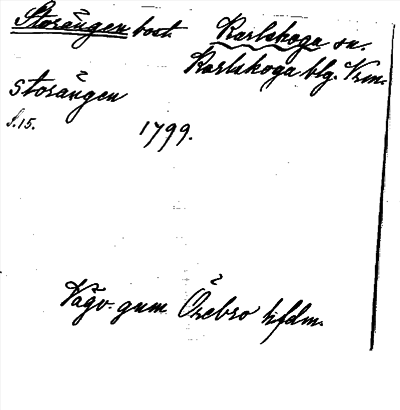 Storängen bost. Karlskoga sn.
Karlskoga blg. Vrm.
storängen
S.15. 1799.
Vägv. gnm Örebro hfdm.